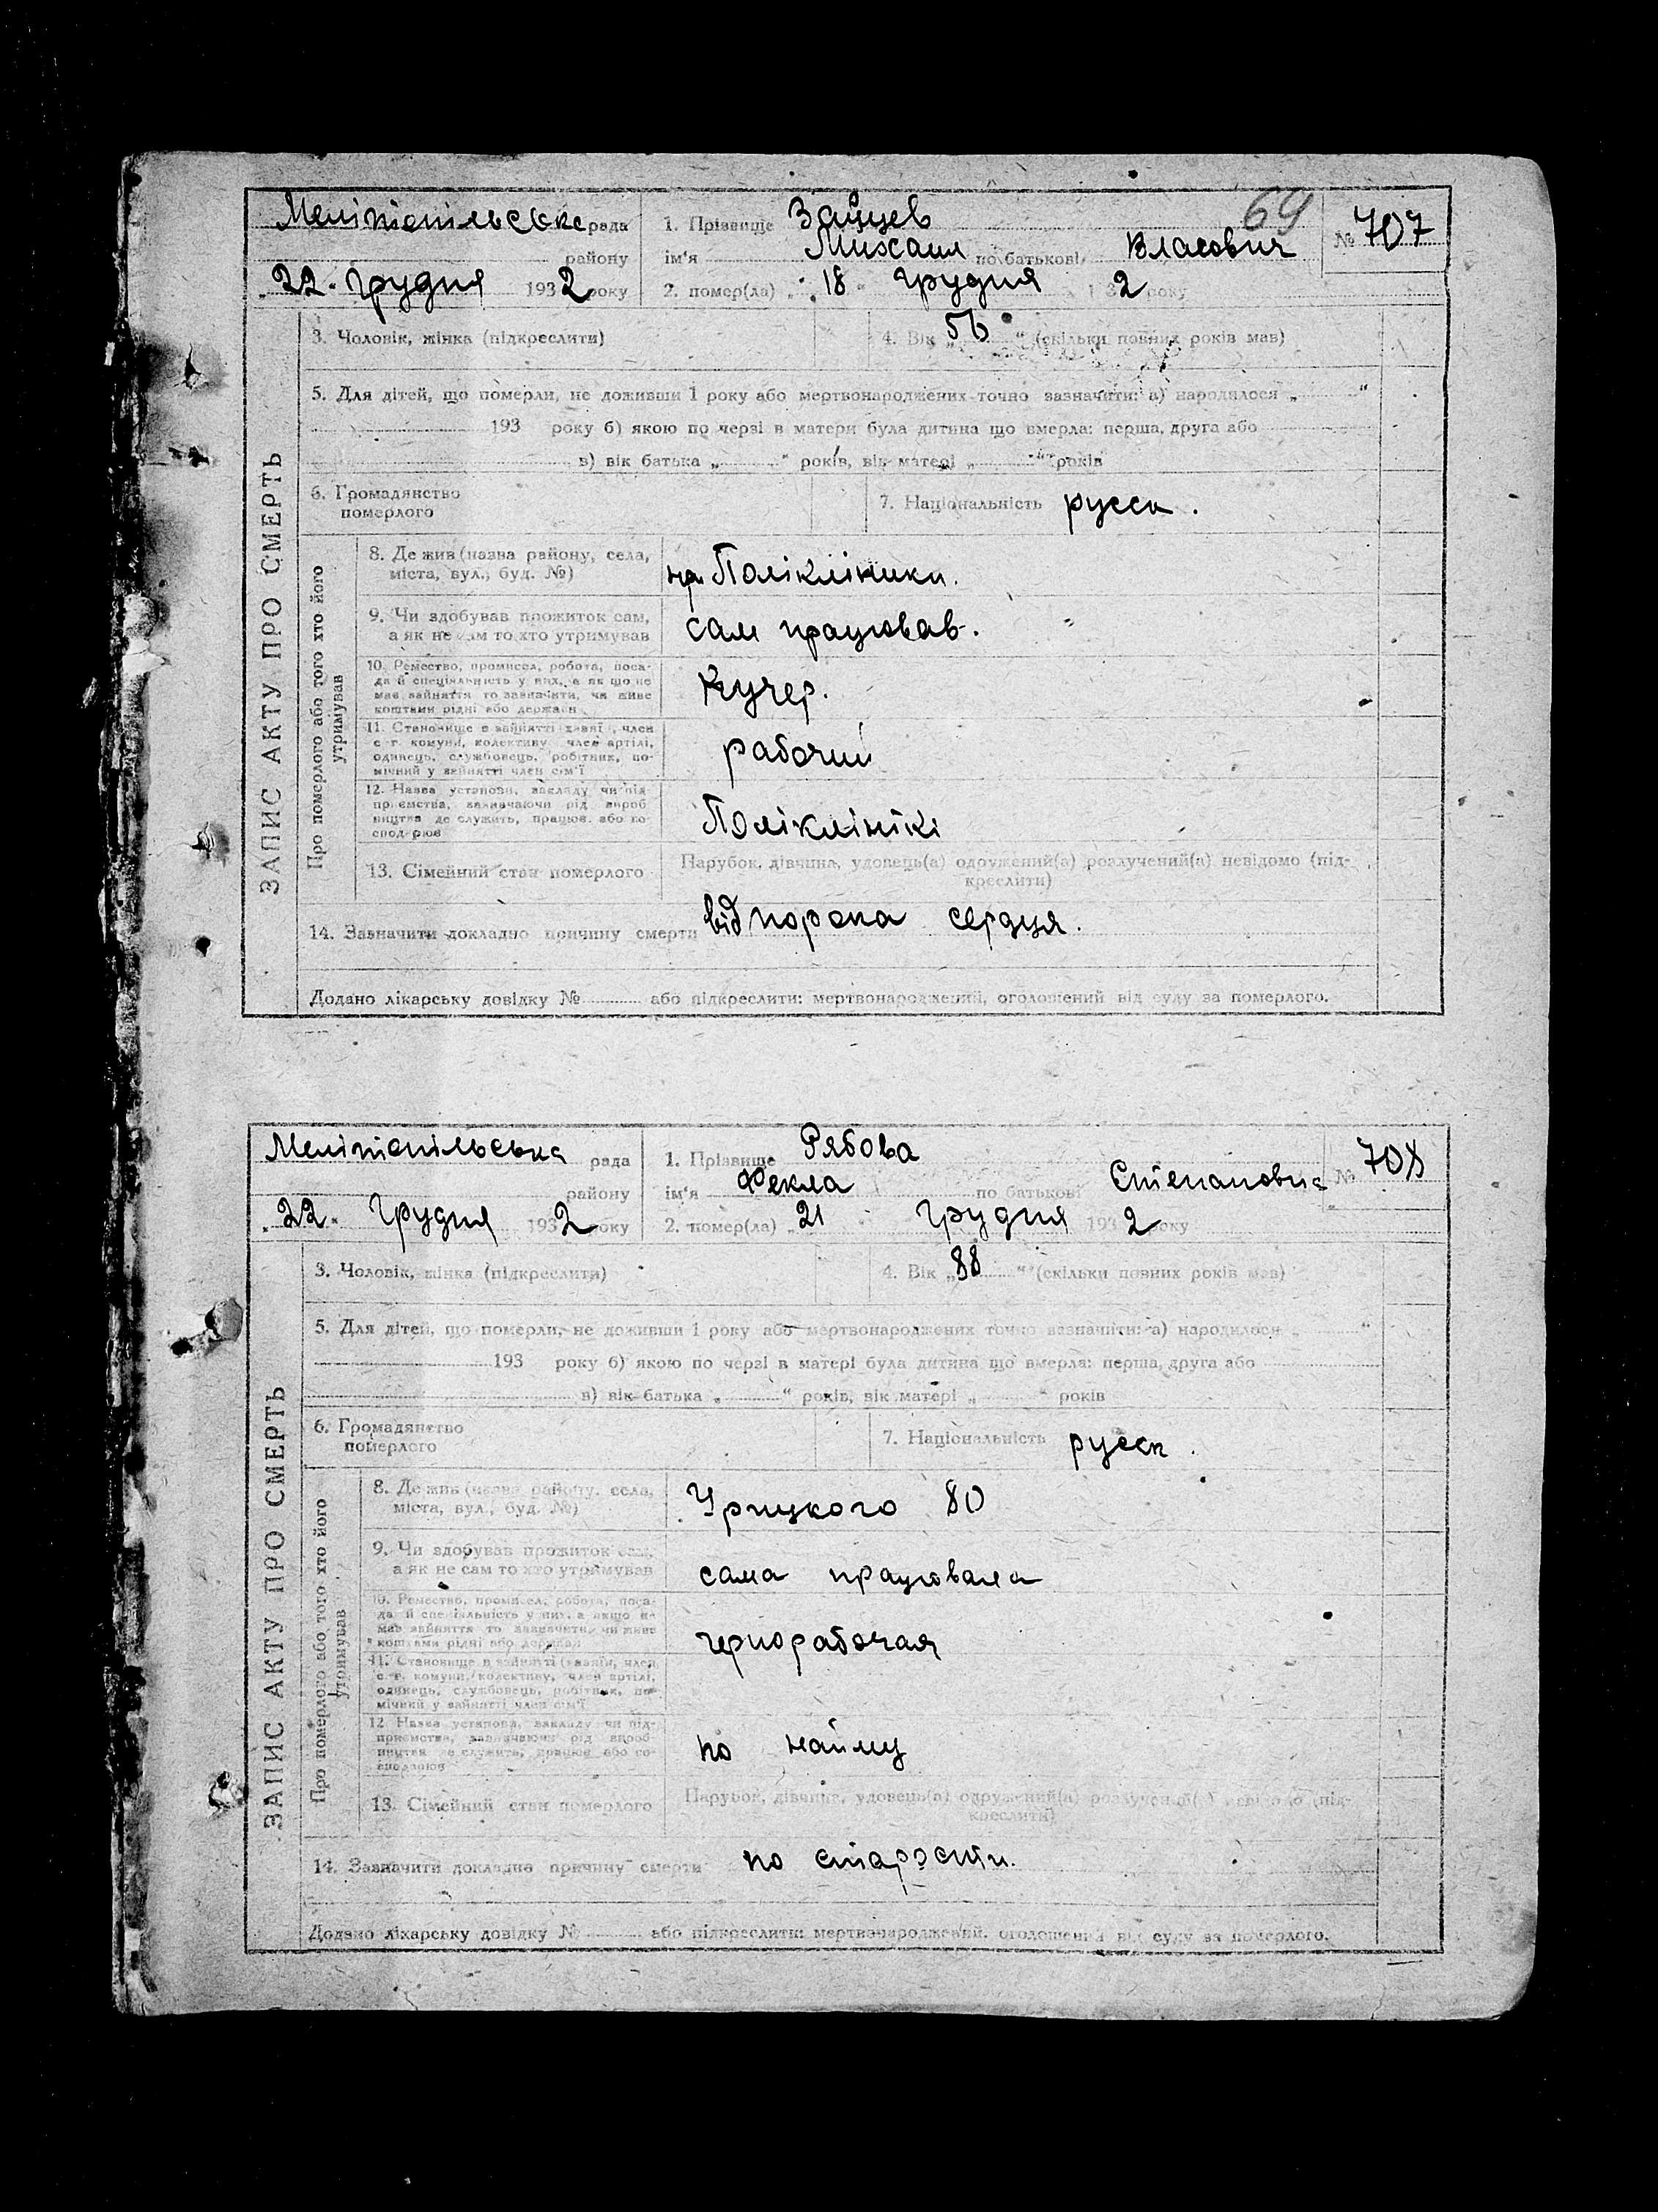 69
Мелітопільська рада 1. Прізвище Зайцев № 707
району ім'я Михаил по батькові Власович
„22" грудня 1932 року 2. помер(ла) „18" грудня 193 2 року
ЗАПИС АКТУ ПРО СМЕРТЬ
3. Чоловік, жінка (підкреслити) 4. Вік „56" (скільки повних років мав)
5. Для дітей, що померли, не доживши 1 року або мертвонароджених точно зазначити: а) народилося „ "
193 року б) якою по черзі в матери була дитина що вмерла: перша, друга або
в) вік батька „ " років, вік матері „ " років
6. Громадянство померлого 7. Національність русск.
Про померлого або того хто його утримував
8. Де жив (назва району, села,
міста, вул., буд. №) Поліклініки.
9. Чи здобував прожиток сам,
а як не сам то хто утримував сам працював.
10. Ремество, промисел, робота, поса-
да й спеціяльність у них, а як що не
має зайняття то зазначити, чи живе
коштами рідні або держави Кучер.
11. Становище в зайнятті хазяїн, член
с.-г. комуни, колективу член артілі,
одинець, службовець, робітник, по-
мічний у зайнятті член сім'ї рабочий
12. Назва установи, закладу чи під-
приємства, зазначаючи рід вироб-
ництва де служить, працює або го-
сподарює Полікліникі
13. Сімейний стан померлого Парубок, дівчина, удовець(а) одружений(а) розлучений(а) невідомо (під-
креслити)
14. Зазначити докладно причину смерти від порока сердця.
Додано лікарську довідку № або підкреслити: мертвонароджений, оголошений від суду за померлого.
Мелітопільська рада 1. Прізвище Рябова № 708
району ім'я Фекла по батькові Степановна
„22" грудня 1932 року 2. помер(ла) „21" грудня 1932 року
ЗАПИС АКТУ ПРО СМЕРТЬ
3. Чоловік, жінка (підкреслити) 4. Вік „88" (скільки повних років мав)
5. Для дітей, що померли, не доживши 1 року або мертвонароджених точно зазначити: а) народилося „ "
193 року б) якою по черзі в матері була дитина що вмерла: перша, друга або
в) вік батька „ " років, вік матері „ " років
6. Громадянство померлого 7. Національність русск.
Про померлого або того хто його утримував
8. Де жив (назва району, села,
міста, вул., буд. №) Урицкого 80
9. Чи здобував прожиток сам,
а як не сам то хто утримував сама працювала
10. Ремество, промисел, робота, поса-
да й спеціяльність у них, а якщо не
має зайняття то зазначити, чи живе
коштами рідні або держави чернорабочая
11. Становище в зайнятті (хазяїн, член
с.-г. комуни, колективу, член артілі,
одинець, службовець, робітник, по-
мічний у зайнятті член сім'ї
12. Назва установи, закладу чи під-
приємства, зазначаючи рід вироб-
ництва де служить, працює або го-
сподарює по найму
13. Сімейний стан померлого Парубок, дівчина, удовець(а) одружений(а) розлучений(а) невідомо (під-
креслити)
14. Зазначити докладно причину смерти по старости.
Додано лікарську довідку № або підкреслити: мертвонароджений, оголошений від суду за померлого.